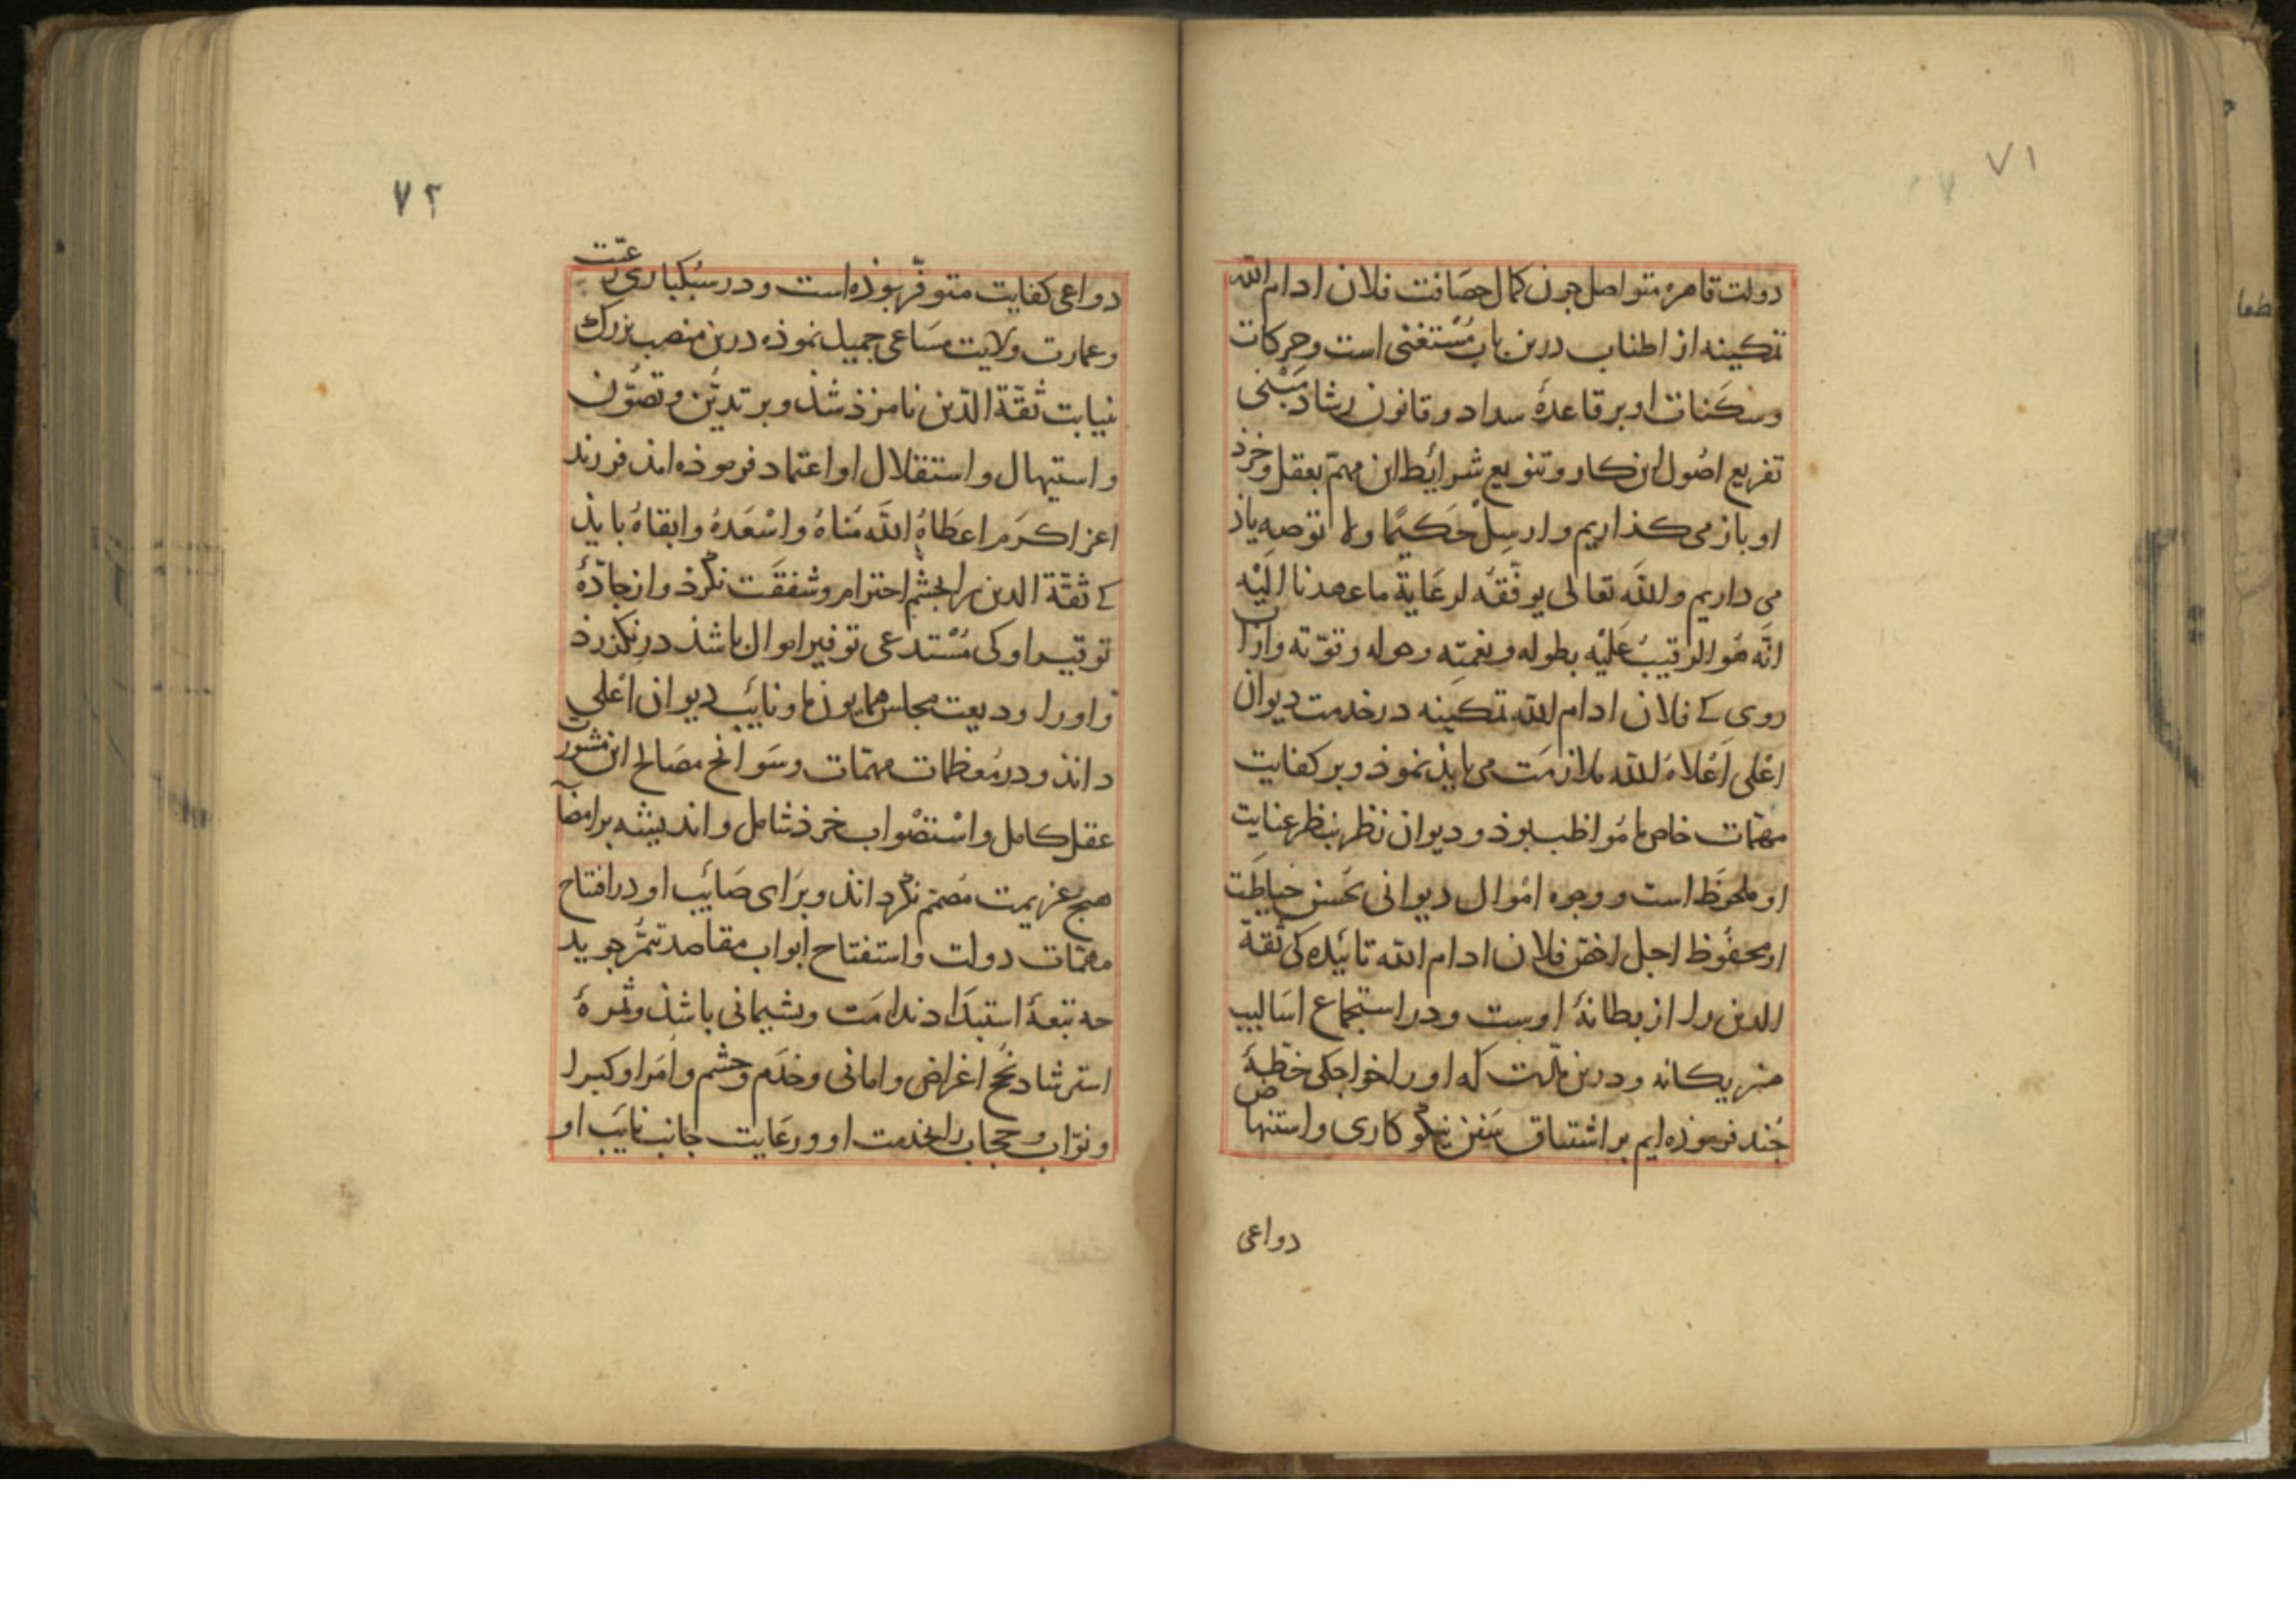 ۷۱
دولت قاهره متواصل جون کمال حصَافت فلان ادام الله
تمکینه از اطناب درین باب مُسْتغنی است وحرکات
وسکَنات او بر قاعدهٔ سداد و قانون رشاد مَبْنی
تفریع اصُول این کار وتنویع شرائط این مهمّ بعقل وخرذ
او باز می کذاریم وارسِلْ حَکیمًا ولا توُصِه یاذ
می داریم والله تعالی یوفّقهُ لرعَایة ما عهدنا الَیْه
انّه هُو الرقیبُ عَلیْه بطوله ونِعْمَتِه وحوله وقوّته وازان
روی کے فلان ادام الله تمکینه در خدمت دیوان
اعْلی اَعْلاهُ الله ملازمَت می بایذ نموذ وبر کفایت
مهمّات خاص ما مُواظب بوذ و دیوان نظر بنظر عنایت
او ملحوظ است ووجوه امْوال دیوانی بحُسن حیاطَت
او محفُوظ اجل اخصّ فلان ادام الله تائیده کی ثقة
الدین را از بطانهٔ اوست ودر استجماع اسَالیب
هنر یکانه ودرین مدّت که او را خواجکی خطّهٔ
جند فرموذه ایم بر اشتیاق سَفن نیکو کاری واستنهاض
دواعی
۷۲
دواعی کفایت متوفّر بوذه است ودر سبُکباری رعیّت
وعمارت ولایت مسَاعی جمیل نموذه درین منصب بزرك
نیابت ثقة الدّین نامزذ شذ وبر تدیُّن وتصوُّن
واستیهال واستقلال او اعتماد فرموذه اند فرزند
اعز اکرَم اعطَاهُ الله مُناهُ واسْعَدهُ وابقاهُ بایذ
کے ثقة الدین را بجشْم احترام وشفقَت نکرذ واز جادّهٔ
توقیر او کی مُسْتدعی توفیر اموال باشذ در نکذرذ
واو را ودیعت مجلس همایون ما ونائب دیوان اعْلی
دانذ ودر مُعظمات مهمّات وسَوانح مصَالح از مشورت
عقل کامل واسْتصْواب خرذ شامل واندیشه بر امضآ
هیج عزیمت مُصمّم نکرداند وبرَای صَائب او در افتتاح
مهمّات دولت واستفتاح ابواب مقاصد تیمّن جوید
جه تبعهٔ استبدَاد ندامَت وبشیمانی باشذ وثمرهٔ
استرشاد نُجح اغراض وامانی وخدَم وحشم واُمَرا وکبرا
ونوّاب وحجاب را بخدمت او ورعَایت جانب نایَب او